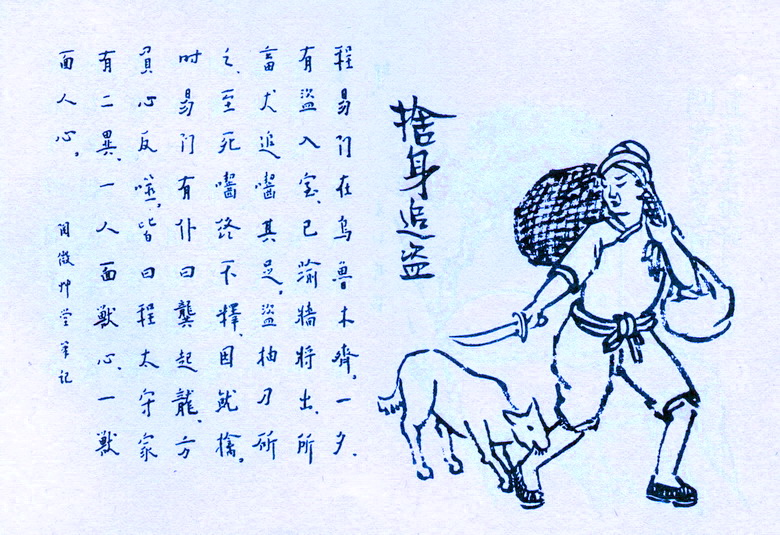 捨身追盗
程易门在乌鲁木齊。一夕、
有盜入室、已踰牆將出、所
畜犬追嚙其足。盜抽刀斫
之、至死嚙终不釋、因就擒。
时易门有仆曰龔起龍、方
負心反噬。皆曰程太守家
有二異、一人面獸心、一獸
面人心。
阅微艸堂笔记